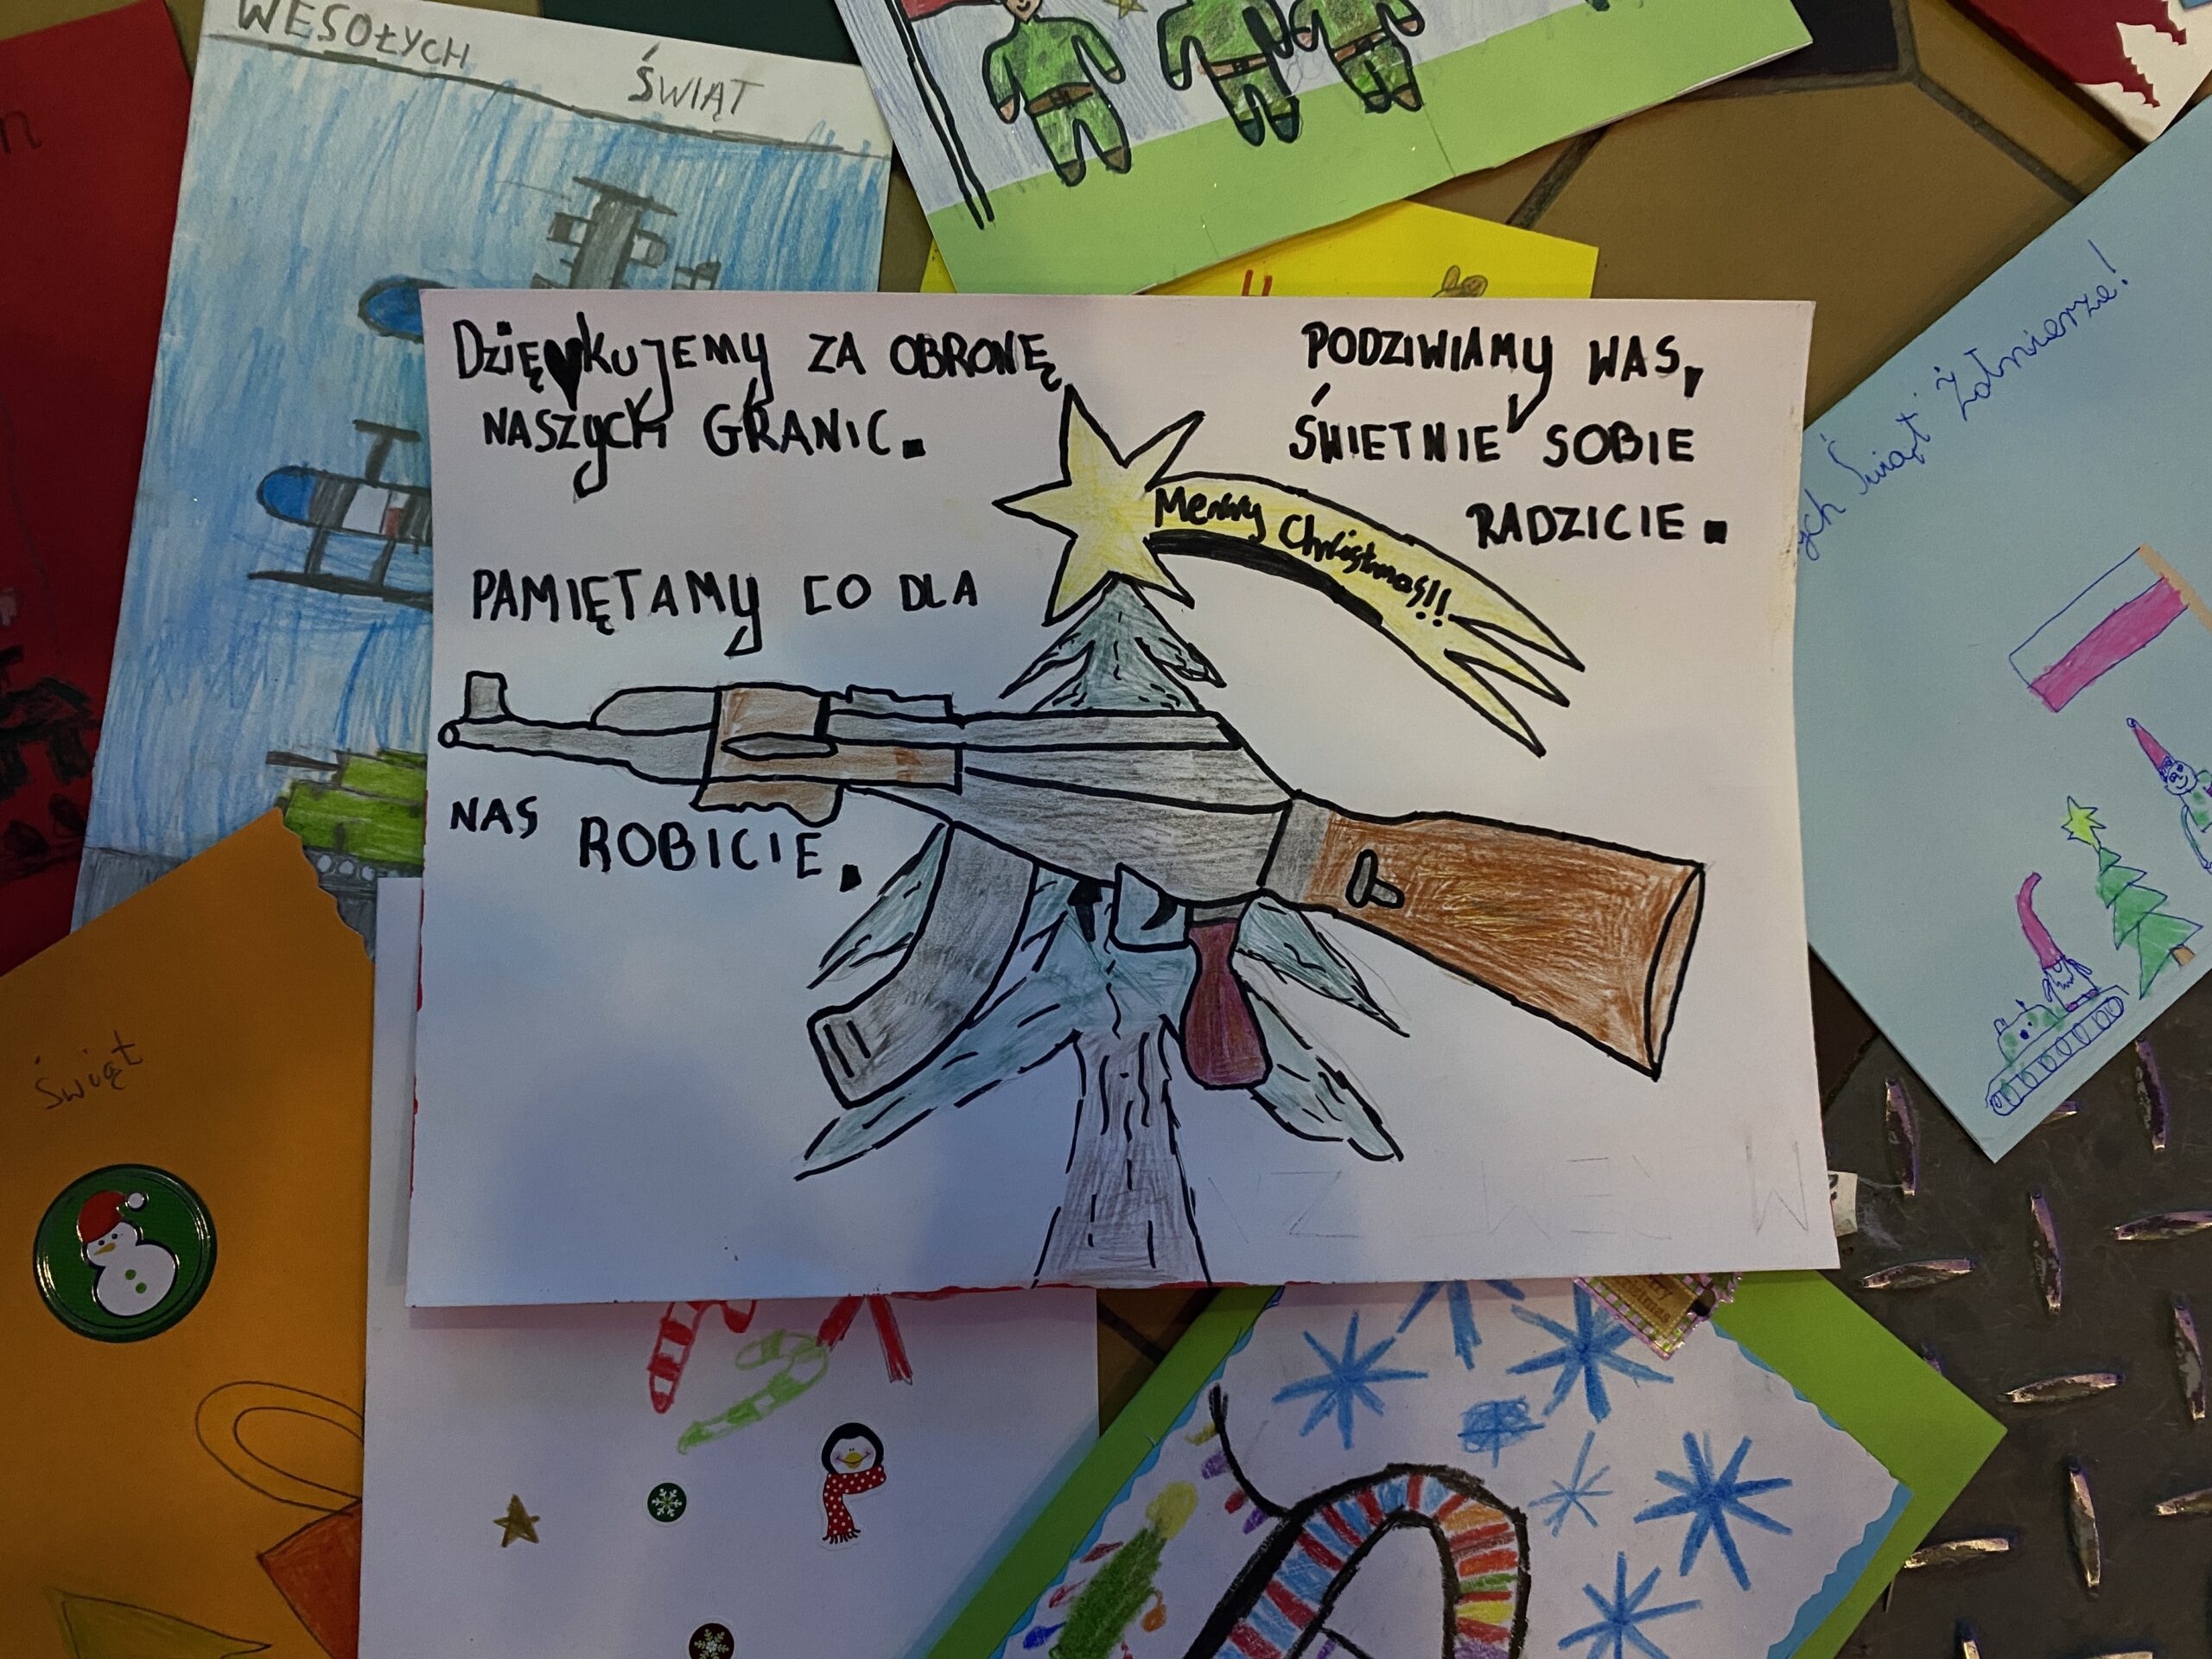 WESOŁYCH ŚWIĄT
DZIĘKUJEMY ZA OBRONĘ
NASZYCH GRANIC.
PODZIWIAMY WAS,
ŚWIETNIE SOBIE
RADZICIE.
Merry Christmas!!
PAMIĘTAMY CO DLA
NAS ROBICIE.
ych Świąt Żołnierze!
Świąt